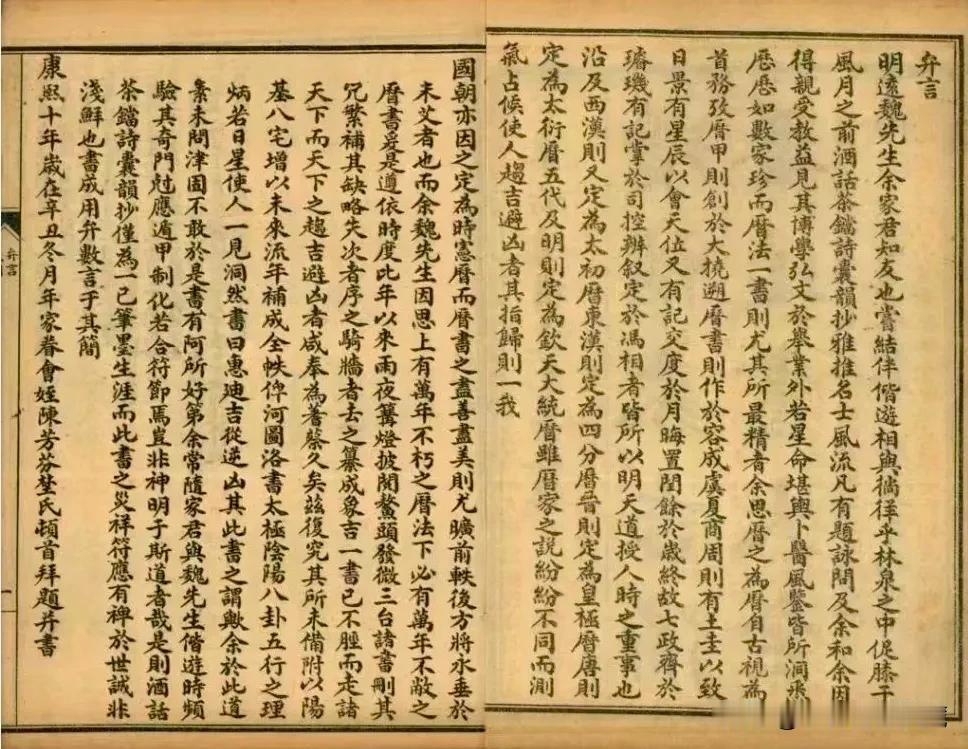 弁言
明遠魏先生余家君知友也嘗結伴偕遊相與徜徉乎林泉之中促膝于
風月之前酒話茶鐺詩囊韻抄雅推名士風流凡有題詠間及余和余因
得親受教益見其博學弘文於舉業外若星命堪輿卜醫風鑒皆所洞悉
歷歷如數家珍而曆法一書則尤其所最精者余思曆之為曆自古視為
首務攷曆甲則創於大撓遡曆書則作於容成虞夏商周則有土圭以致
日景有星辰以會天位又有記交度於月晦置閏餘於歲終故七政齊於
璿璣有記掌於司控辨叙定於馮相者皆所以明天道授人時之重事也
沿及西漢則又定為太初曆東漢則定為四分曆晉則定為皇極曆唐則
定為太衍曆五代及明則定為欽天大統曆雖曆家之說紛紛不同而測
氣占候使人趨吉避凶者其指歸則一我
國朝亦因之定為時憲曆而曆書之盡善盡美則尤曠前軼後方將永垂於
未艾者也而余魏先生因思上有萬年不朽之曆法下必有萬年不敝之
曆書爰是遵依時度比年以來雨夜篝燈披閱鰲頭發微三台諸書刪其
冗繁補其缺略失次者序之騎牆者去之纂成象吉一書已不脛而走諸
天下而天下之趨吉避凶者咸奉為蓍蔡久矣茲復究其所未備附以陽
基八宅增以未來流年補成全帙俾河圖洛書太極陰陽八卦五行之理
炳若日星使人一見洞然書曰惠迪吉從逆凶其此書之謂歟余於此道
素未問津固不敢於是書有阿所好第余常隨家君與魏先生偕遊時頻
驗其奇門尅應遁甲制化若合符節焉豈非神明于斯道者哉是則酒話
茶鐺詩囊韻抄僅為一己筆墨生涯而此書之災祥符應有裨於世誠非
淺鮮也書成用弁數言于其簡
康熙十年歲在辛丑冬月年家眷會姪陳芳芬埜氏頓首拜題并書
弁言
一